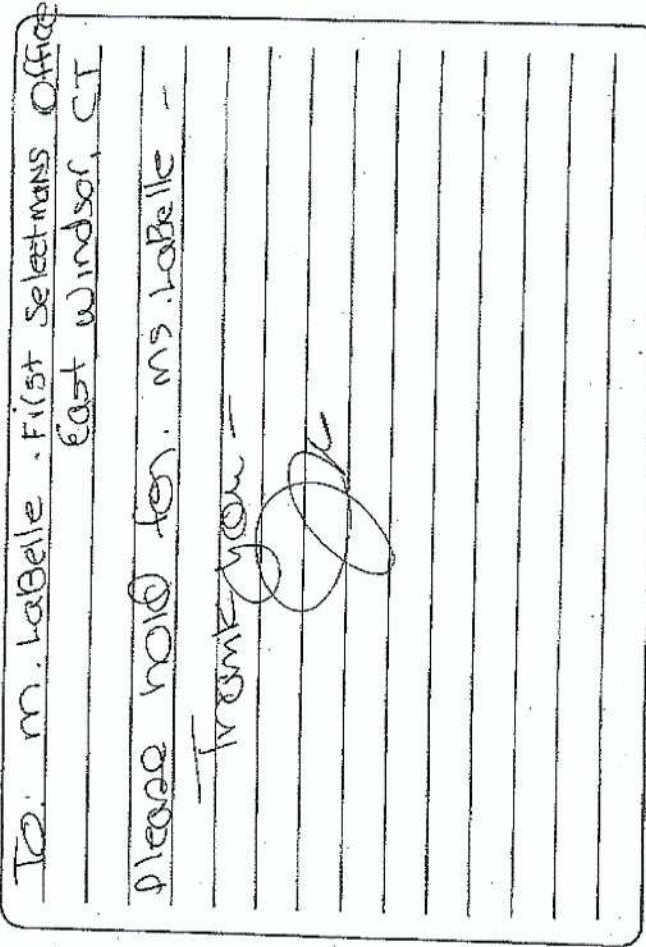 To: M. LaBelle . First Selectmans Office
East Windsor, CT
please hold for. ms. LaBelle -
Thank you -